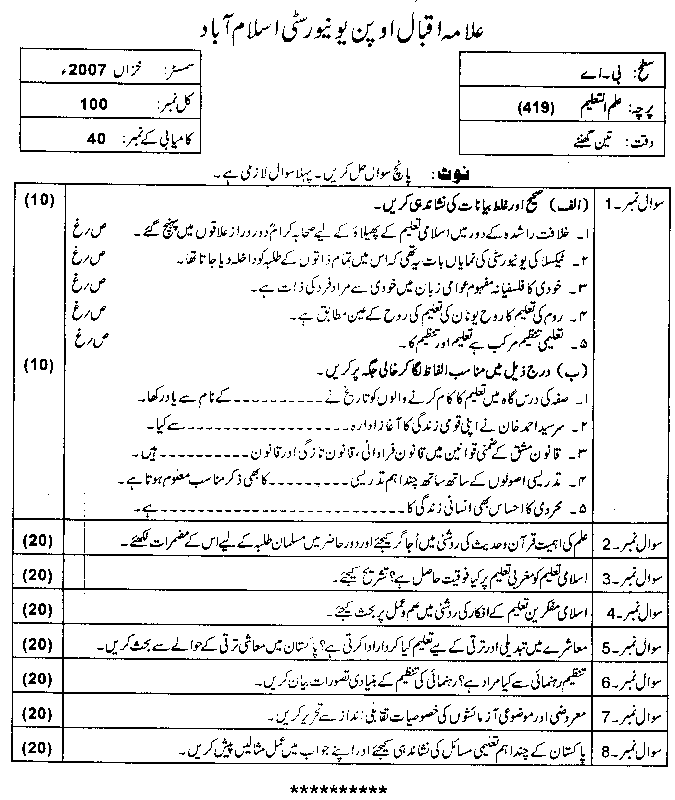 علامہ اقبال اوپن یونیورسٹی اسلام آباد
سطح: بی۔اے
پرچہ: علم التعلیم (419)
وقت: تین گھنٹے
سمسٹر: خزاں 2007ء
کل نمبر: 100
کامیابی کے نمبر: 40
نوٹ: پانچ سوال حل کریں۔ پہلا سوال لازمی ہے۔
سوال نمبر۔1 (الف) صحیح اور غلط بیانات کی نشاندہی کریں۔ (10)
۱۔ خلافت راشدہ کے دور میں اسلامی تعلیم کے پھیلاؤ کے لیے صحابہ کرامؓ دور دراز علاقوں میں پہنچ گئے۔ ص/غ
۲۔ ٹیکسلا کی یونیورسٹی کی نمایاں بات یہ تھی کہ اس میں تمام ذاتوں کے طلبہ کو داخلہ دیا جاتا تھا۔ ص/غ
۳۔ خودی کا فلسفیانہ مفہوم عوامی زبان میں خودی سے مراد فرد کی ذات ہے۔ ص/غ
۴۔ روم کی تعلیم کا روح یونان کی تعلیم کی روح کے عین مطابق ہے۔ ص/غ
۵۔ تعلیمی تنظیم مرکب ہے تعلیم اور تنظیم کا۔ ص/غ
(ب) درج ذیل میں مناسب الفاظ لگا کر خالی جگہ پر کریں۔ (10)
۱۔ صفہ کی درس گاہ میں تعلیم کا کام کرنے والوں کو تاریخ نے ---------- کے نام سے یاد رکھا۔
۲۔ سرسید احمد خان نے اپنی قومی زندگی کا آغاز ادارہ ---------- سے کیا۔
۳۔ قانون مشق کے ضمنی قوانین میں قانون فراوانی، قانون تازگی اور قانون ---------- ہیں۔
۴۔ تدریسی اصولوں کے ساتھ ساتھ چند اہم تدریسی ---------- کا بھی ذکر مناسب معلوم ہوتا ہے۔
۵۔ محرومی کا احساس بھی انسانی زندگی کا ---------- ہے۔
سوال نمبر۔2 علم کی اہمیت قرآن و حدیث کی روشنی میں اُجاگر کیجئے اور دور حاضر میں مسلمان طلبہ کے لیے اس کے مضمرات لکھئے۔ (20)
سوال نمبر۔3 اسلامی تعلیم کو مغربی تعلیم پر کیا فوقیت حاصل ہے؟ تشریح کیجئے۔ (20)
سوال نمبر۔4 اسلامی مفکرین تعلیم کے افکار کی روشنی میں علم و عمل پر بحث کیجئے۔ (20)
سوال نمبر۔5 معاشرے میں تبدیلی اور ترقی کے لیے تعلیم کیا کردار ادا کرتی ہے؟ پاکستان میں معاشی ترقی کے حوالے سے بحث کریں۔ (20)
سوال نمبر۔6 تنظیم رہنمائی سے کیا مراد ہے؟ رہنمائی کی تنظیم کے بنیادی تصورات بیان کریں۔ (20)
سوال نمبر۔7 معروضی اور موضوعی آزمائشوں کی خصوصیات تقابلی انداز سے تحریر کریں۔ (20)
سوال نمبر۔8 پاکستان کے چند اہم تعلیمی مسائل کی نشاندہی کیجئے اور اپنے جواب میں عملی مثالیں پیش کریں۔ (20)
**********